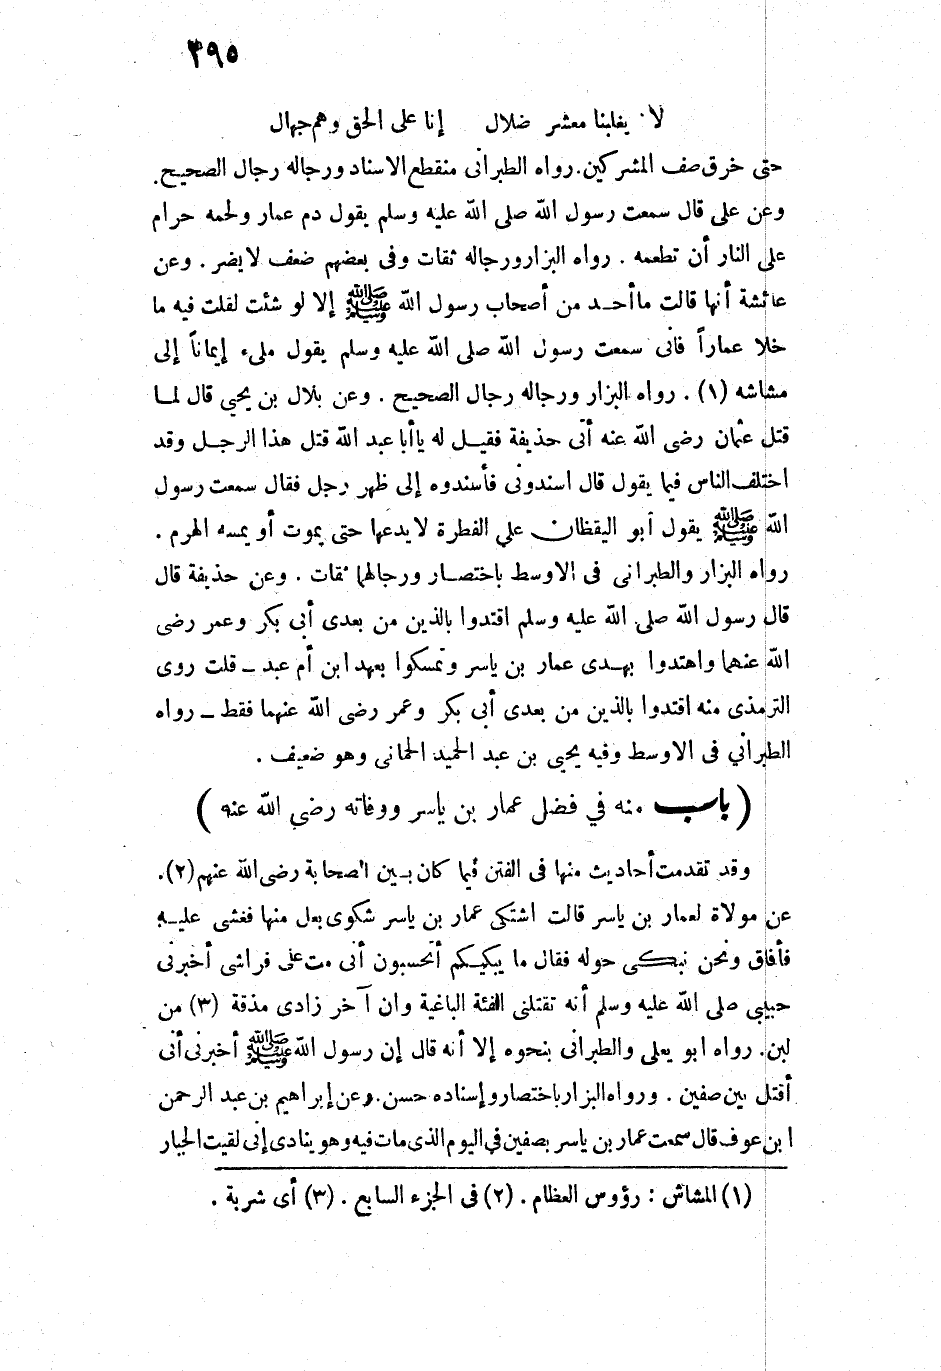 ٢٩٥
لا يغلبنا معشر ضلال إنا على الحق وهم جهال
حتى خرق صف المشركين. رواه الطبرانى منقطع الاسناد ورجاله رجال الصحيح.
وعن على قال سمعت رسول الله صلى الله عليه وسلم يقول دم عمار ولحمه حرام
على النار أن تطعمه . رواه البزار ورجاله ثقات وفى بعضهم ضعف لا يضر . وعن
عائشة أنها قالت ما أحد من أصحاب رسول الله ﷺ إلا لو شئت لقلت فيه ما
خلا عماراً فانى سمعت رسول الله صلى الله عليه وسلم يقول ملىء إيماناً إلى
مشاشه (١) . رواه البزار ورجاله رجال الصحيح . وعن بلال بن يحيى قال لما
قتل عثمان رضى الله عنه أتى حذيفة فقيل له ياأبا عبد الله قتل هذا الرجل وقد
اختلف الناس فما يقول قال اسندونى فأسندوه إلى ظهر رجل فقال سمعت رسول
الله ﷺ يقول أبو اليقظان على الفطرة لا يدعها حتى يموت أو يمسه الهرم .
رواه البزار والطبرانى فى الاوسط باختصار ورجالهما ثقات . وعن حذيفة قال
قال رسول الله صلى الله عليه وسلم اقتدوا بالذين من بعدى أبى بكر وعمر رضى
الله عنهما واهتدوا بهدى عمار بن ياسر وتمسكوا بعهد ابن أم عبد ـ قلت روى
الترمذى منه اقتدوا بالذين من بعدى أبى بكر وعمر رضى الله عنهما فقط ـ رواه
الطبرانى فى الاوسط وفيه يحيى بن عبد الحميد الحمانى وهو ضعيف .
( باب منه في فضل عمار بن ياسر ووفاته رضي الله عنه )
وقد تقدمت أحاديث منها فى الفتن فيما كان بين الصحابة رضى الله عنهم (٢).
عن مولاة لعمار بن ياسر قالت اشتكى عمار بن ياسر شكوى بعل منها فغشى عليه
فأفاق ونحن نبكى حوله فقال ما يبكيكم أتحسبون أنى مت على فراشى أخبرنى
حبيبى صلى الله عليه وسلم أنه تقتلنى الفئة الباغية وان آخر زادى مذقة (٣) من
لبن. رواه ابو يعلى والطبرانى بنحوه إلا أنه قال إن رسول الله ﷺ أخبرنى أنى
أقتل بين صفين . ورواه البزار باختصار وإسناده حسن. وعن إبراهيم بن عبد الرحمن
ابن عوف قال سمعت عمار بن ياسر بصفين في اليوم الذى مات فيه وهو ينادى إنى لقيت الجبار
(١) المشاش : رؤوس العظام . (٢) فى الجزء السابع . (٣) أى شربة .